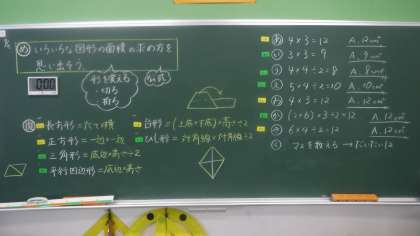 め いろいろな図形の面積の求め方を
思い出そう。
形を変える
・切る
公式
長方形=たて×横
正方形=一辺×一辺
三角形=底辺×高さ÷2
平行四辺形=底辺×高さ
台形=(上底+下底)×高さ÷2
ひし形=対角線×対角線÷2
あ 4×3=12 A.12cm²
い 3×3=9 A.9cm²
う 4×4÷2=8 A.8cm²
え 5×4÷2=10 A.10cm²
お 4×3=12 A.12cm²
か (2+6)×3÷2=12 A.12cm²
き 6×4÷2=12 A.12cm²
く マスを数える→だいたい12